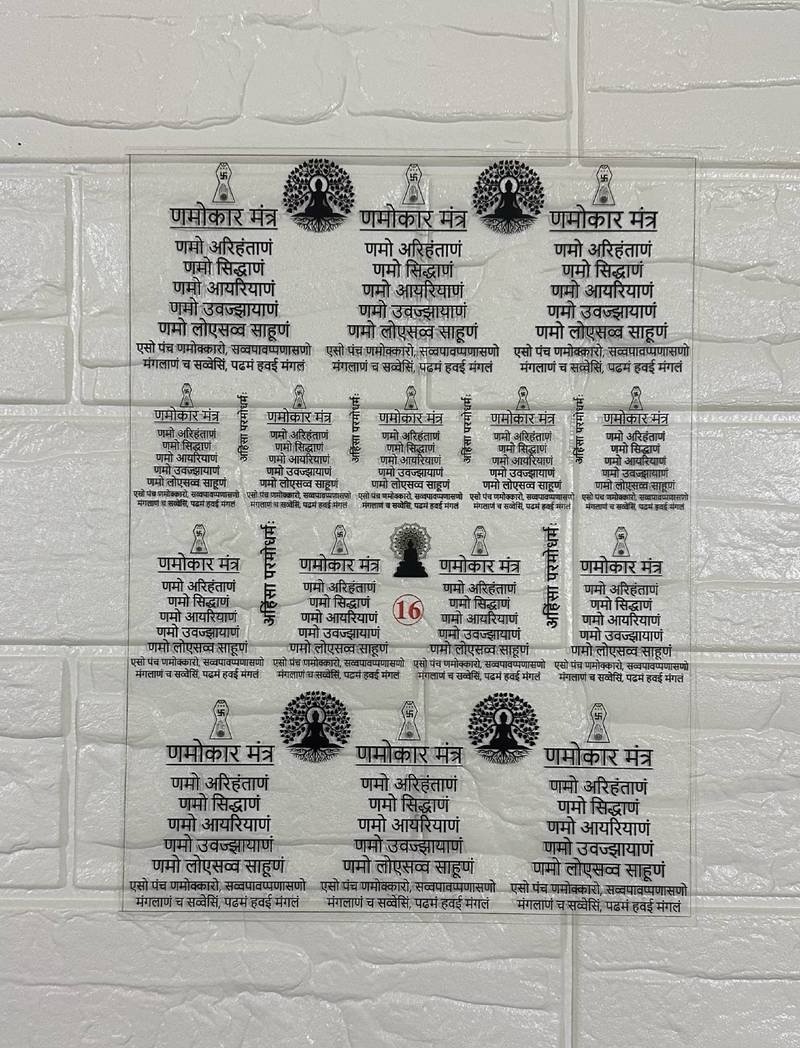 णमोकार मंत्र
णमो अरिहंताणं
णमो सिद्धाणं
णमो आयरियाणं
णमो उवज्झायाणं
णमो लोएसव्व साहूणं
एसो पंच णमोक्कारो, सव्वपावप्पणासणो
मंगलाणं च सव्वेसिं, पढमं हवई मंगलं
णमोकार मंत्र
णमो अरिहंताणं
णमो सिद्धाणं
णमो आयरियाणं
णमो उवज्झायाणं
णमो लोएसव्व साहूणं
एसो पंच णमोक्कारो, सव्वपावप्पणासणो
मंगलाणं च सव्वेसिं, पढमं हवई मंगलं
णमोकार मंत्र
णमो अरिहंताणं
णमो सिद्धाणं
णमो आयरियाणं
णमो उवज्झायाणं
णमो लोएसव्व साहूणं
एसो पंच णमोक्कारो, सव्वपावप्पणासणो
मंगलाणं च सव्वेसिं, पढमं हवई मंगलं
णमोकार मंत्र
णमो अरिहंताणं
णमो सिद्धाणं
णमो आयरियाणं
णमो उवज्झायाणं
णमो लोएसव्व साहूणं
एसो पंच णमोक्कारो, सव्वपावप्पणासणो
मंगलाणं च सव्वेसिं, पढमं हवई मंगलं
अहिंसा परमोधर्मः
णमोकार मंत्र
णमो अरिहंताणं
णमो सिद्धाणं
णमो आयरियाणं
णमो उवज्झायाणं
णमो लोएसव्व साहूणं
एसो पंच णमोक्कारो, सव्वपावप्पणासणो
मंगलाणं च सव्वेसिं, पढमं हवई मंगलं
अहिंसा परमोधर्मः
णमोकार मंत्र
णमो अरिहंताणं
णमो सिद्धाणं
णमो आयरियाणं
णमो उवज्झायाणं
णमो लोएसव्व साहूणं
एसो पंच णमोक्कारो, सव्वपावप्पणासणो
मंगलाणं च सव्वेसिं, पढमं हवई मंगलं
अहिंसा परमोधर्मः
णमोकार मंत्र
णमो अरिहंताणं
णमो सिद्धाणं
णमो आयरियाणं
णमो उवज्झायाणं
णमो लोएसव्व साहूणं
एसो पंच णमोक्कारो, सव्वपावप्पणासणो
मंगलाणं च सव्वेसिं, पढमं हवई मंगलं
अहिंसा परमोधर्मः
णमोकार मंत्र
णमो अरिहंताणं
णमो सिद्धाणं
णमो आयरियाणं
णमो उवज्झायाणं
णमो लोएसव्व साहूणं
एसो पंच णमोक्कारो, सव्वपावप्पणासणो
मंगलाणं च सव्वेसिं, पढमं हवई मंगलं
णमोकार मंत्र
णमो अरिहंताणं
णमो सिद्धाणं
णमो आयरियाणं
णमो उवज्झायाणं
णमो लोएसव्व साहूणं
एसो पंच णमोक्कारो, सव्वपावप्पणासणो
मंगलाणं च सव्वेसिं, पढमं हवई मंगलं
अहिंसा परमोधर्मः
णमोकार मंत्र
णमो अरिहंताणं
णमो सिद्धाणं
णमो आयरियाणं
णमो उवज्झायाणं
णमो लोएसव्व साहूणं
एसो पंच णमोक्कारो, सव्वपावप्पणासणो
मंगलाणं च सव्वेसिं, पढमं हवई मंगलं
16
णमोकार मंत्र
णमो अरिहंताणं
णमो सिद्धाणं
णमो आयरियाणं
णमो उवज्झायाणं
णमो लोएसव्व साहूणं
एसो पंच णमोक्कारो, सव्वपावप्पणासणो
मंगलाणं च सव्वेसिं, पढमं हवई मंगलं
अहिंसा परमोधर्मः
णमोकार मंत्र
णमो अरिहंताणं
णमो सिद्धाणं
णमो आयरियाणं
णमो उवज्झायाणं
णमो लोएसव्व साहूणं
एसो पंच णमोक्कारो, सव्वपावप्पणासणो
मंगलाणं च सव्वेसिं, पढमं हवई मंगलं
णमोकार मंत्र
णमो अरिहंताणं
णमो सिद्धाणं
णमो आयरियाणं
णमो उवज्झायाणं
णमो लोएसव्व साहूणं
एसो पंच णमोक्कारो, सव्वपावप्पणासणो
मंगलाणं च सव्वेसिं, पढमं हवई मंगलं
णमोकार मंत्र
णमो अरिहंताणं
णमो सिद्धाणं
णमो आयरियाणं
णमो उवज्झायाणं
णमो लोएसव्व साहूणं
एसो पंच णमोक्कारो, सव्वपावप्पणासणो
मंगलाणं च सव्वेसिं, पढमं हवई मंगलं
णमोकार मंत्र
णमो अरिहंताणं
णमो सिद्धाणं
णमो आयरियाणं
णमो उवज्झायाणं
णमो लोएसव्व साहूणं
एसो पंच णमोक्कारो, सव्वपावप्पणासणो
मंगलाणं च सव्वेसिं, पढमं हवई मंगलं